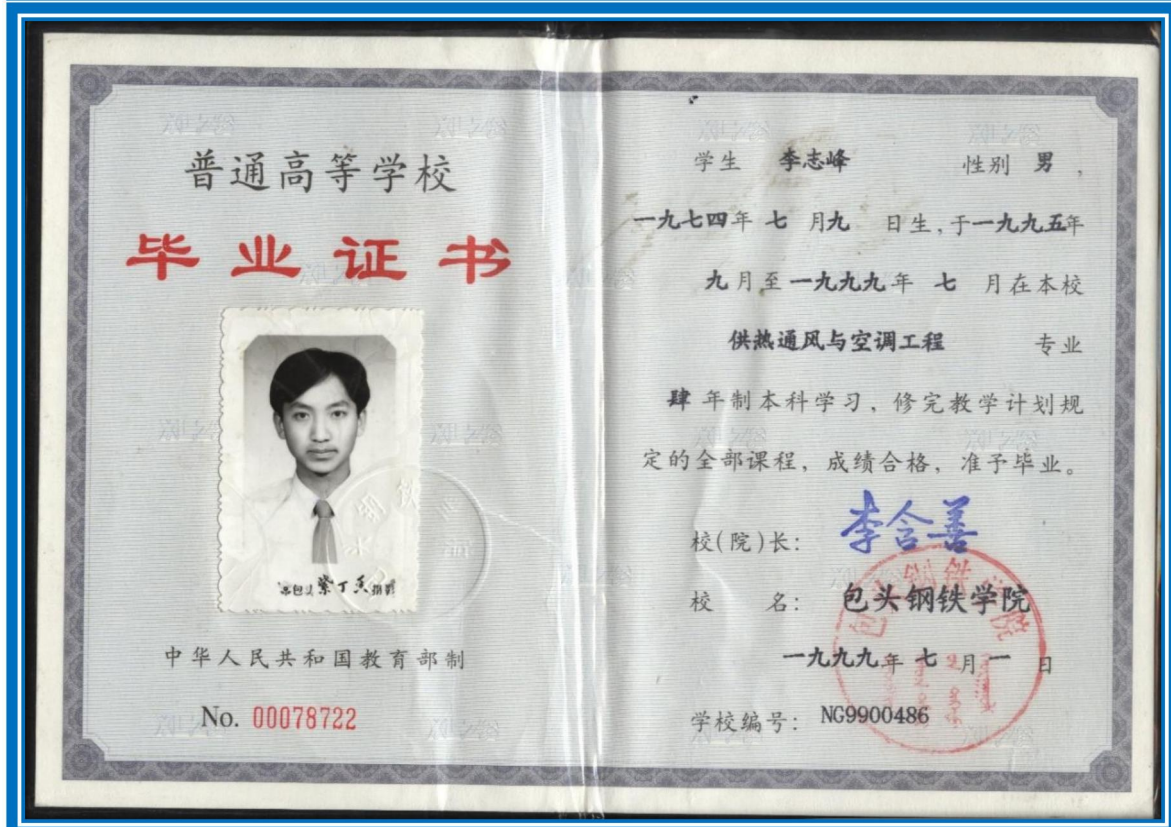 普通高等学校
毕业证书
紫丁香摄影
中华人民共和国教育部制
No. 00078722
学生 李志峰 性别 男，
一九七四年 七 月九 日生，于一九九五年
九月至一九九九年 七 月在本校
供热通风与空调工程 专业
肆 年制本科学习，修完教学计划规
定的全部课程，成绩合格，准予毕业。
校(院)长： 李含善
校 名： 包头钢铁学院
包头钢铁学院
一九九九年 七 月 一 日
学校编号： NG9900486